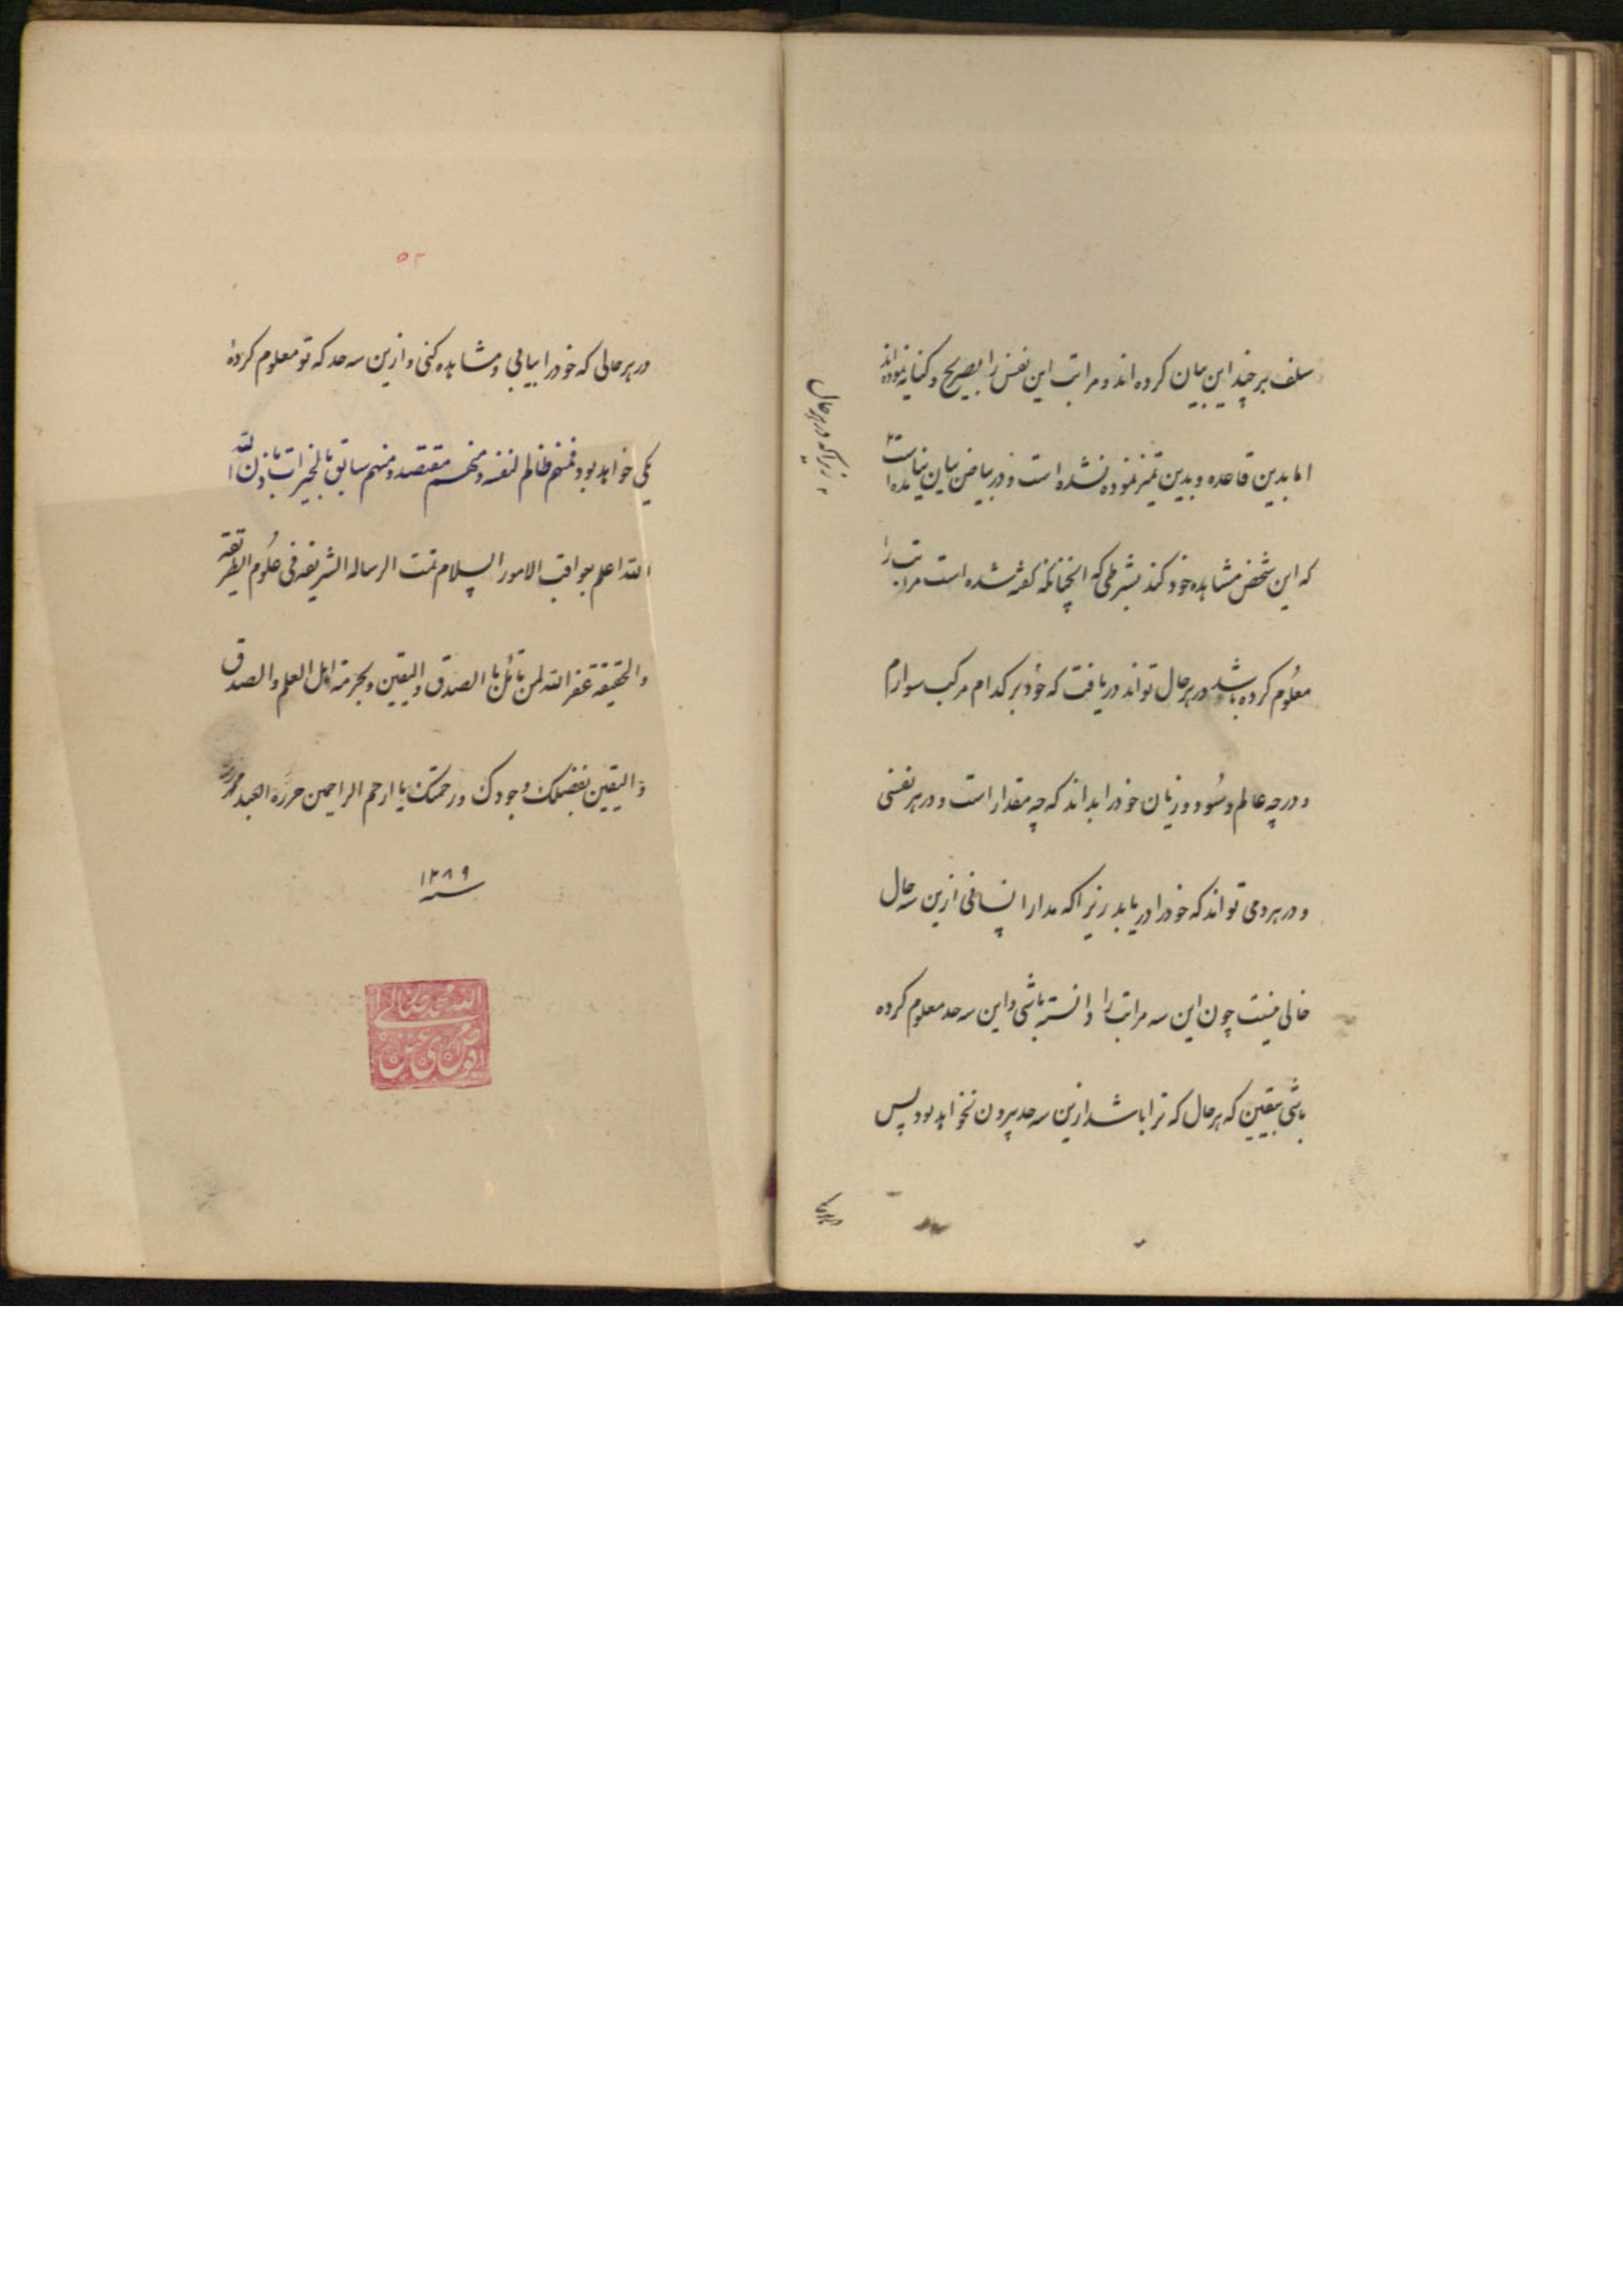 سلف هرچند این بیان کرده اند و مراتب این نفس را بصریح و کنایه نموده اند
اما بدین قاعده و بدین تمیز نموده نشده است و در بیاض بیان نیامده است
که این شخص مشاهده خود کند بشرطی که آنچنانکه گفته شده است مراتب را
معلوم کرده باشد در هر حال تواند دریافت که خود بر کدام مرکب سوارم
و در چه عالم و سود و زیان خود را بداند که چه مقدار است و در هر نفسی
و در هر دمی تواند که خود را دریابد زیرا که مدار انسانی ازین سه حال
خالی نیست چون این سه مراتب را دانسته باشی و این سه حد معلوم کرده
باشی بیقین که هر حال که ترا باشد ازین سه حد بیرون نخواهد بود پس
زیرا که در هر حال
۵۲
در هر حالی که خود را بیابی و مشاهده کنی و ازین سه حد که تو معلوم کردهٔ
یکی خواهد بود فمنهم ظالم لنفسه و منهم مقتصد و منهم سابق بالخیرات باذن الله
الله اعلم بعواقب الامور السلام تمت الرساله الشریفه فی علوم الطریقه
والحقیقه غفر الله لمن تأمل بالصدق والیقین و بحرمة اهل العلم والصدق
والیقین بفضلک وجودک ورحمتک یا ارحم الراحمین حرره العبد
سنه ۱۲۸۹